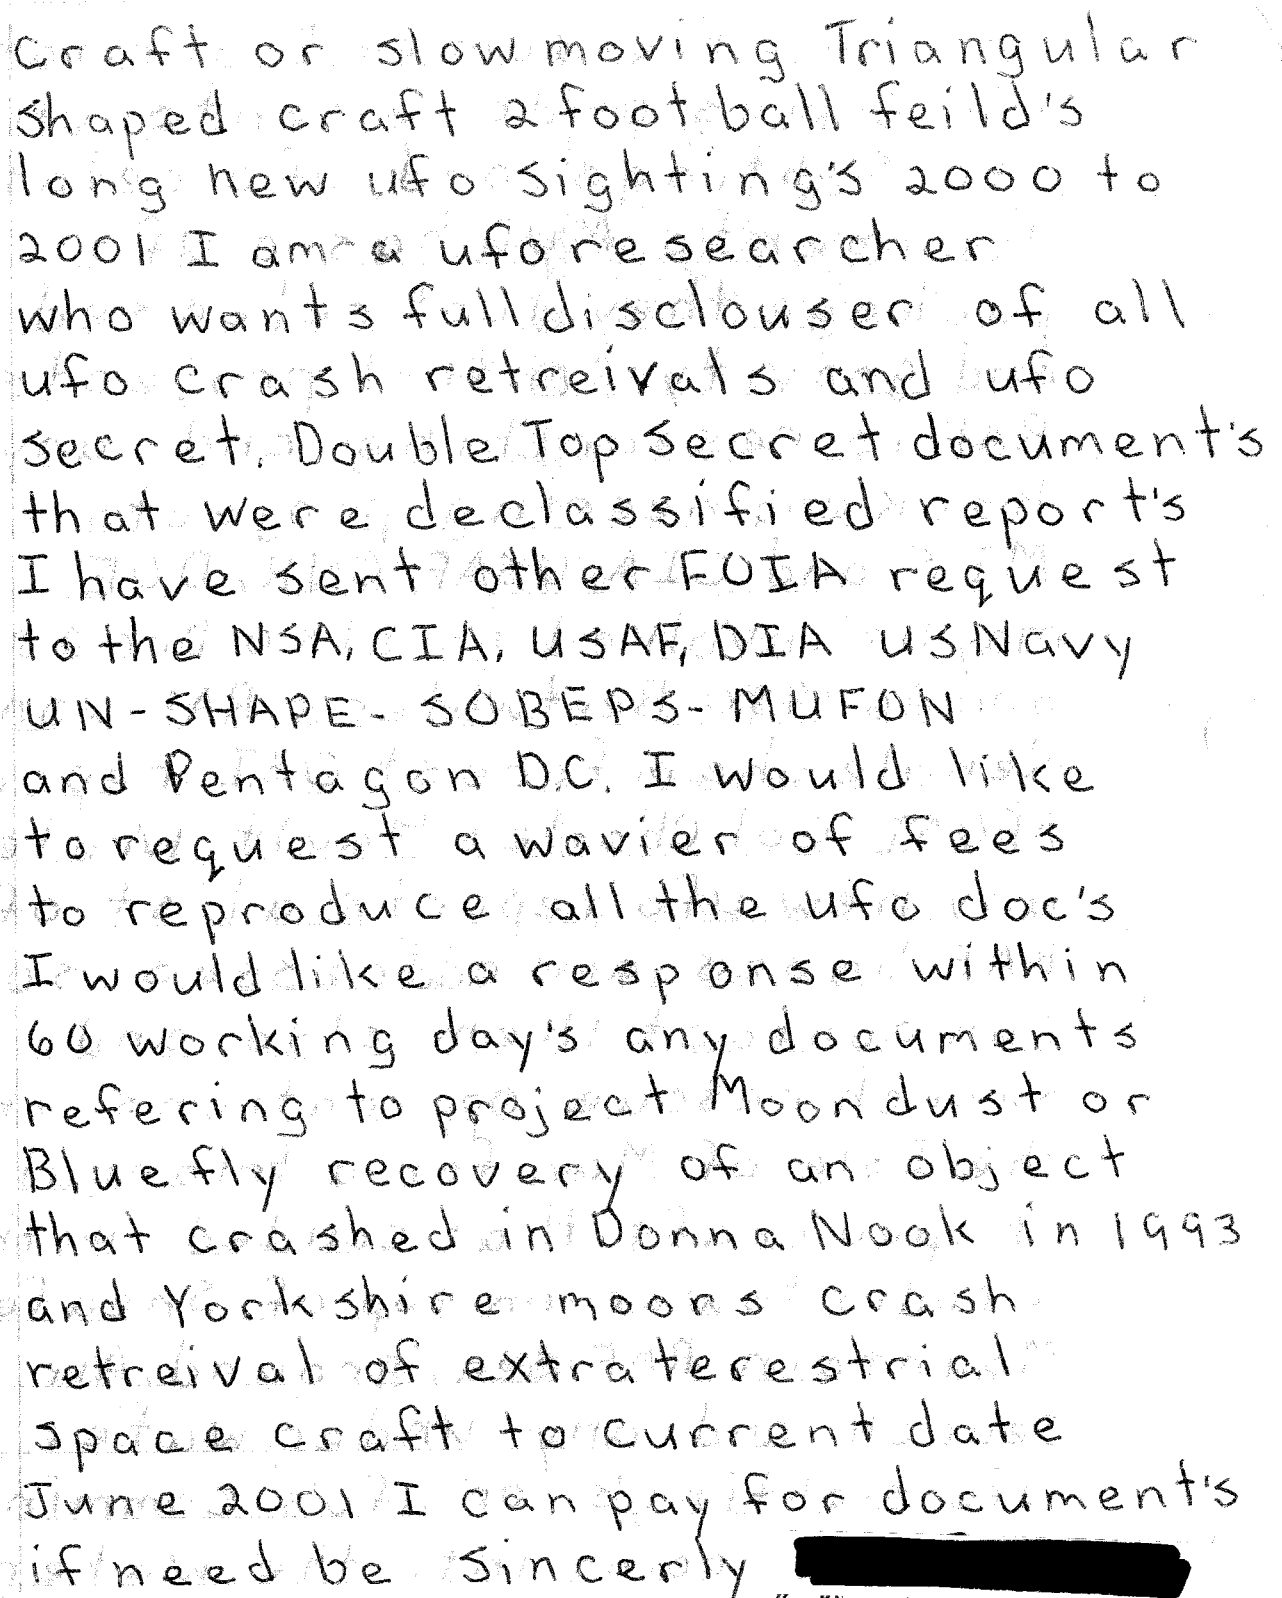 Craft or slow moving Triangular
shaped craft 2 foot ball feild's
long new ufo sighting's 2000 to
2001 I am a ufo researcher
who wants full disclouser of all
ufo crash retreivals and ufo
secret. Double Top Secret document's
that were declassified report's
I have sent other FOIA request
to the NSA, CIA, USAF, DIA US Navy
UN-SHAPE-SOBEPS-MUFON
and Pentagon D.C. I would like
to request a wavier of fees
to reproduce all the ufo doc's
I would like a response within
60 working day's any documents
refering to project Moondust or
Bluefly recovery of an object
that crashed in Donna Nook in 1993
and Yorkshire moors crash
retreival of extraterestrial
space craft to current date
June 2001 I can pay for document's
if need be Sincerly